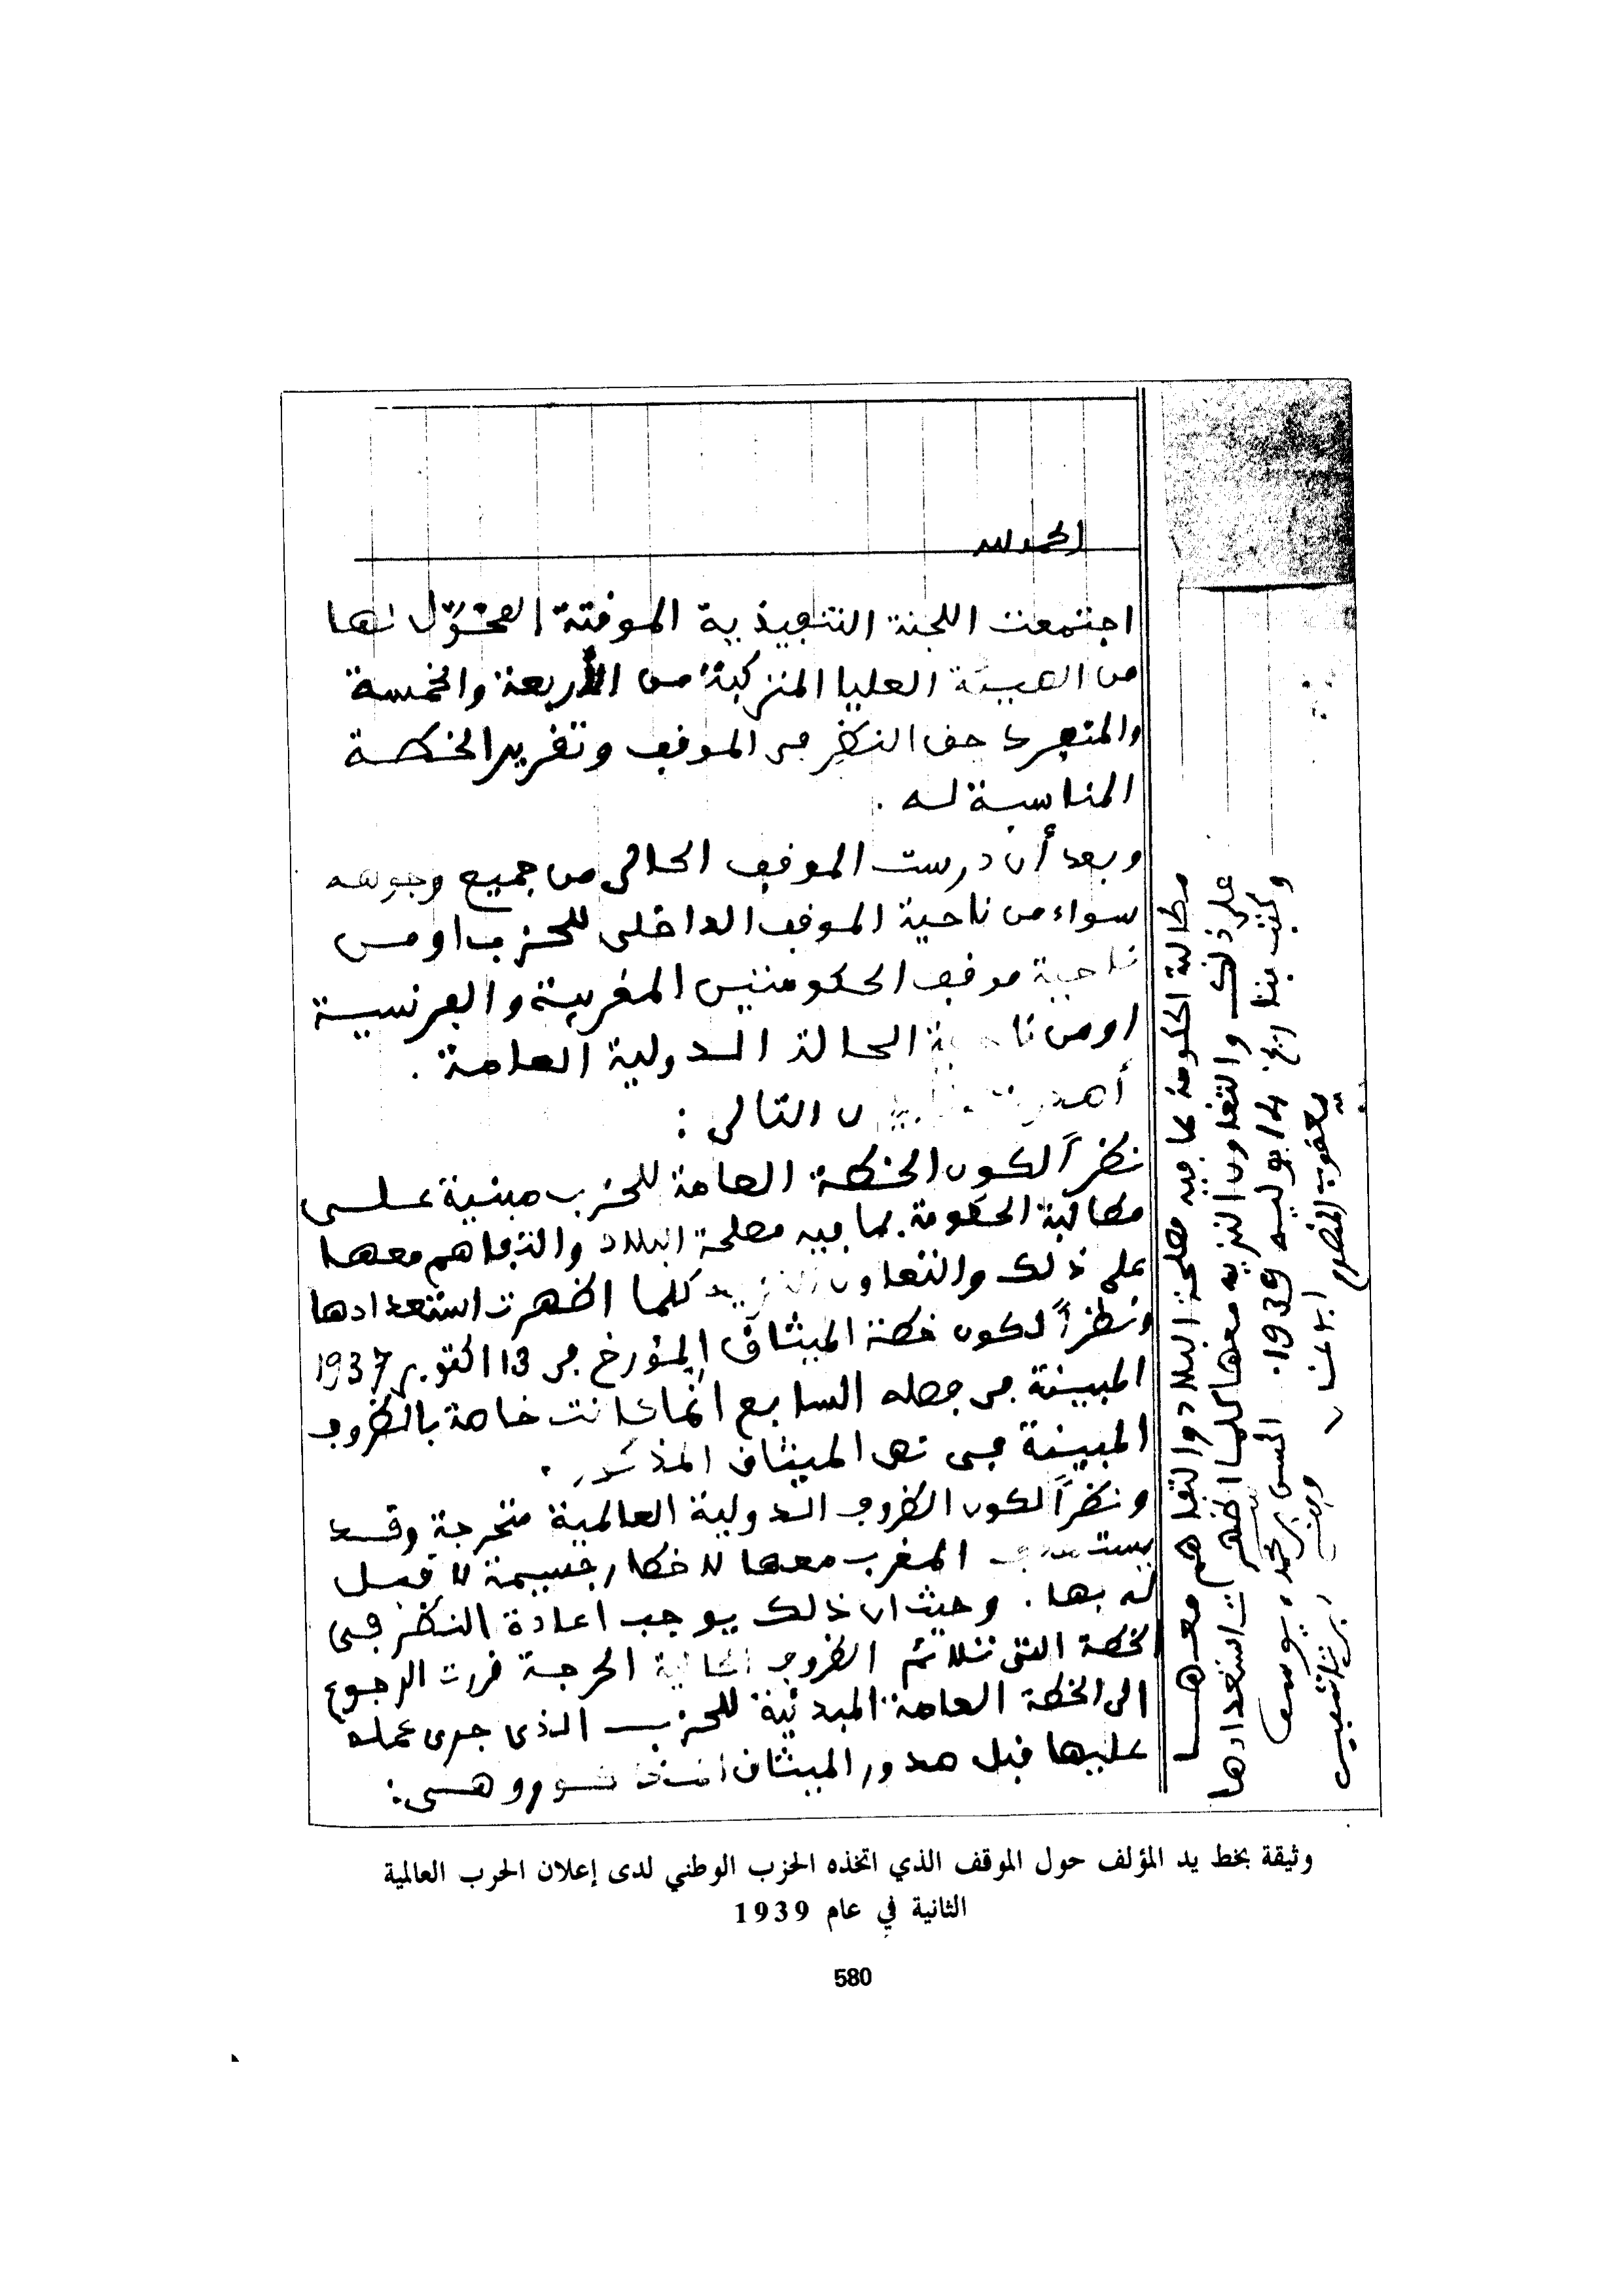 الحمد لله
اجتمعت اللجنة التنفيذية الموقتة المخوّل لها
من الهيئة العليا المتركبة من الأربعة والخمسة
حق النظر في الموقف وتقرير الخطة
المناسبة له .
وبعد أن درست الموقف الحالي من جميع وجوهه
سواء من ناحية الموقف الداخلي للحزب او من
ناحية موقف الحكومتين المغربية والفرنسية
او من ناحية الحالة الدولية العامة .
التالي :
نظراً لكون الخطة العامة للحزب مبنية على
مطالبة الحكومة بما فيه مصلحة البلاد والتفاهم معها
على ذلك والتعاون النزيه كلما اظهرت استعدادها
ونظراً لكون خطة الميثاق المؤرخ في 13 اكتوبر 1937
المبينة في فصله السابع انما كانت خاصة بالظروف
المبينة في نص الميثاق المذكور .
ونظراً لكون الظروف الدولية العالمية متحرجة وقد
المغرب معها لاخطار جسيمة لا قبل
له بها . وحيث ان ذلك يوجب اعادة النظر في
الخطة التي تلائم الظروف الحالية الحرجة قررت الرجوع
الى الخطة العامة المبدئية للحزب الذي جرى عمله
عليها قبل صدور الميثاق وهي :
مطالبة الحكومة بما فيه مصلحة البلاد والتفاهم معها
على ذلك والتعاون النزيه معها كلما اظهرت استعدادها
وكتب بتاريخ 14 يوليه 1939 .
وثيقة بخط يد المؤلف حول الموقف الذي اتخذه الحزب الوطني لدى إعلان الحرب العالمية
الثانية في عام 1939
580